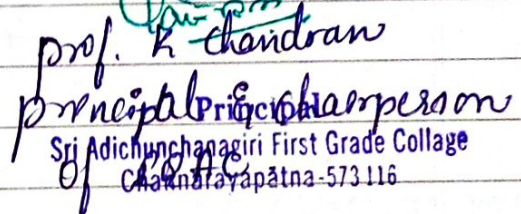 prof. K chandran
principal & chairperson
Principal
Sri Adichunchanagiri First Grade Collage
of IQAC
Channarayapatna-573116